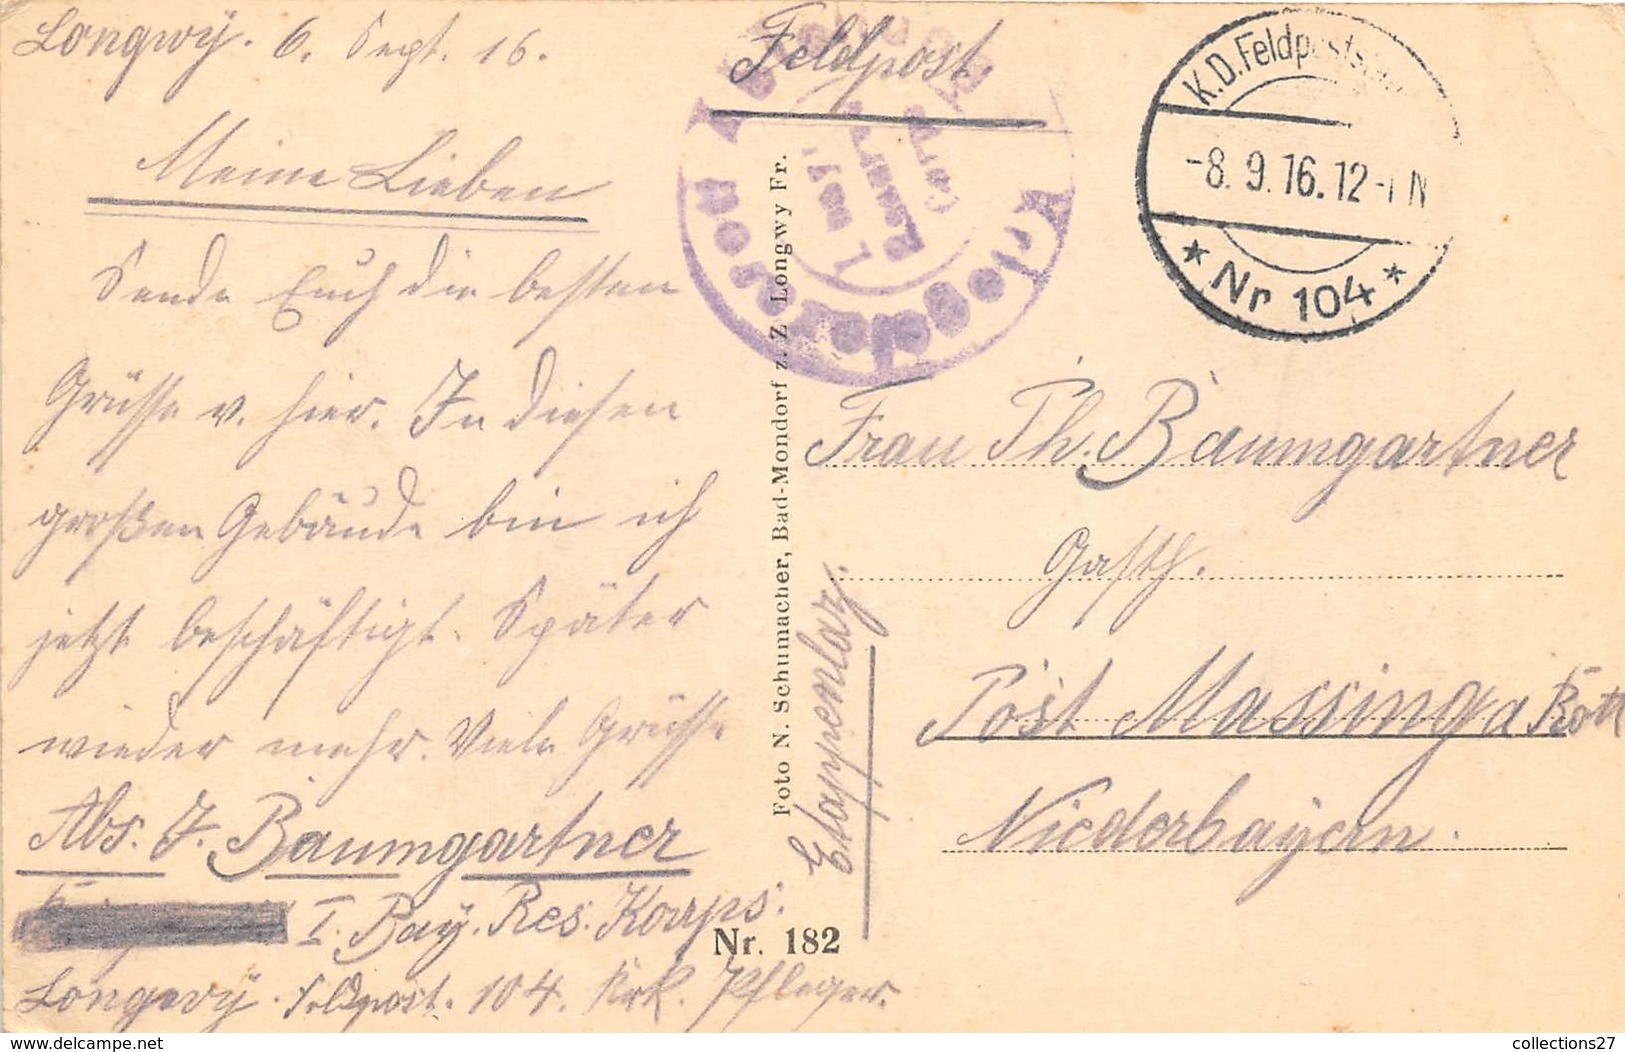 Longwÿ. 6. Sept. 16.
Meine Lieben
Sende Euch die besten
Grüsse v. hier. In diesen
großen Gebäude bin ich
jetzt beschäftigt. Später
wieder mehr. Viele Grüsse
Abs. J. Baumgartner
I. Bay. Res. Korps.
Longwÿ. Feldpost. 104. Krk. Pfleger.
Etappenlaz.
Feldpost.
K.D.Feldpoststation
-8.9.16.12-1N
* Nr 104 *
Kriegslazarett
Longwy
Foto N. Schumacher, Bad-Mondorf z. Z Longwy Fr.
Nr. 182
Frau Th. Baumgartner
Gasth.
Post Massing a Rott
Niederbayern.
collections27